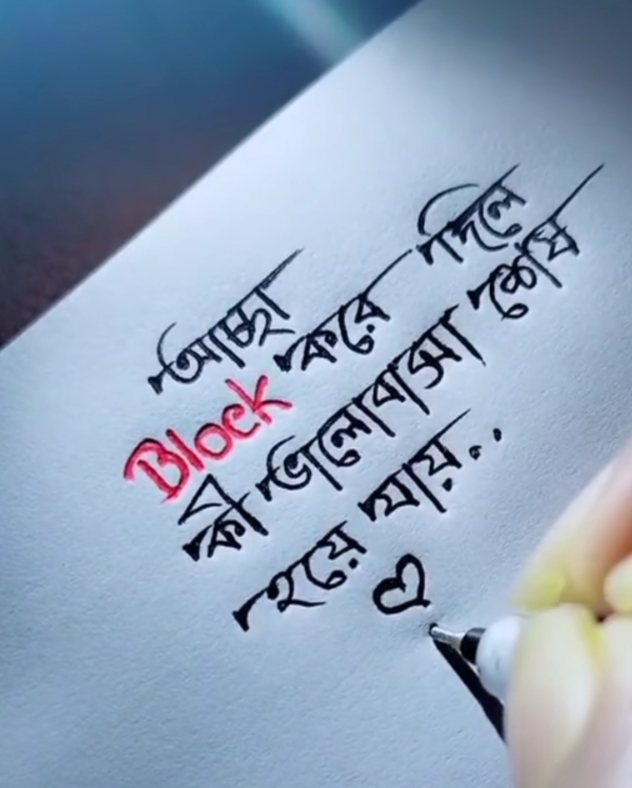 আচ্ছা
Block করে দিলে
কী ভালোবাসা শেষ
হয়ে যায়..